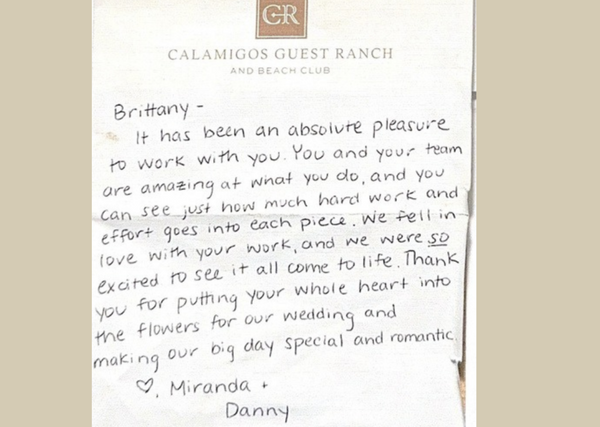 CR
CALAMIGOS GUEST RANCH
AND BEACH CLUB
Brittany -
It has been an absolute pleasure
to work with you. You and your team
are amazing at what you do, and you
can see just how much hard work and
effort goes into each piece. We fell in
love with your work, and we were so
excited to see it all come to life. Thank
you for putting your whole heart into
the flowers for our wedding and
making our big day special and romantic.
♡, Miranda +
Danny